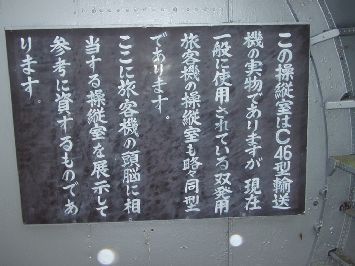 この操縦室はC46型輸送
機の実物でありますが、現在
一般に使用されている双発用
旅客機の操縦室も略々同型
であります。
ここに旅客機の頭脳に相
当する操縦室を展示して
参考に資するものであ
ります。